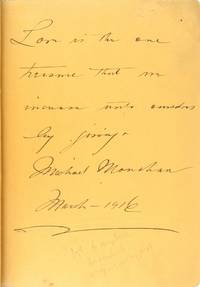 Love is the one
treasure that we
increase unto ourselves
by giving.
Michael Monahan
March - 1916